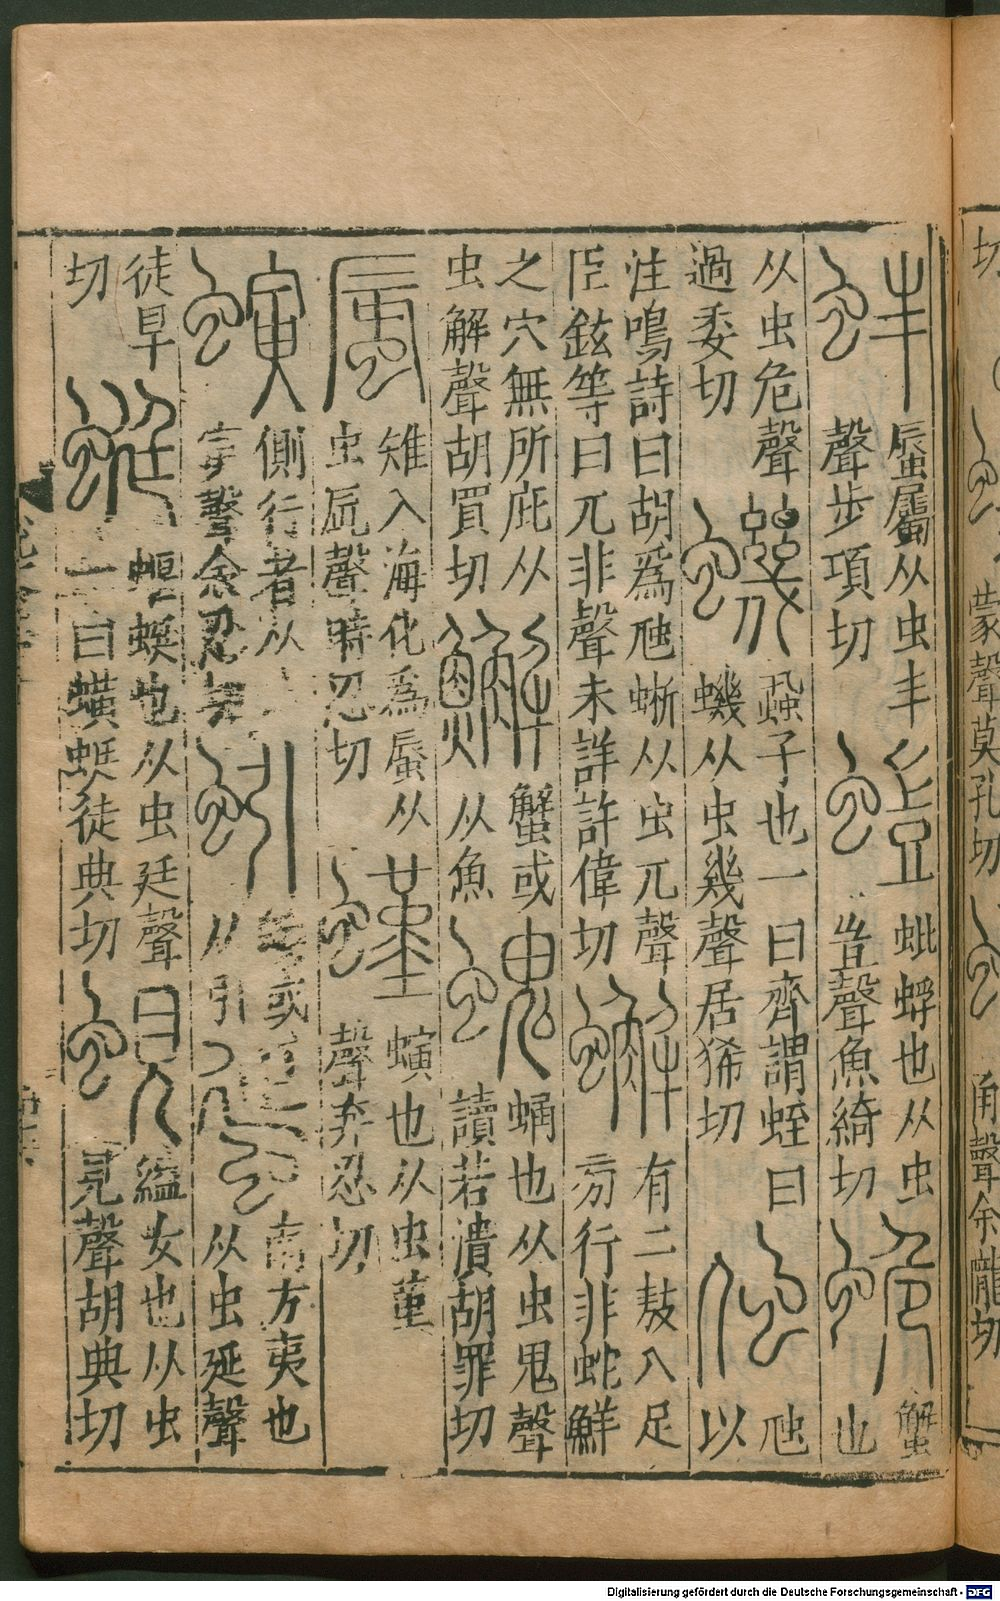 切
蠓
蒙聲莫孔切
甬聲余隴切
蚌
蜃屬从虫丰
聲步項切
螘
蚍蜉也从虫
豈聲魚綺切
蛫
蟹
也
从虫危聲
過委切
蟣
蝨子也一曰齊謂蛭曰
蟣从虫幾聲居狶切
虺
虺
以
注鳴詩曰胡爲虺蜥从虫兀聲
臣鉉等曰兀非聲未詳許偉切
蟹
有二敖八足
旁行非蛇鮮
之穴無所庇从
虫解聲胡買切
䲒
蟹或
从魚
螝
蛹也从虫鬼聲
讀若潰胡罪切
蜃
雉入海化爲蜃从
虫辰聲時忍切
螼
螾也从虫堇
聲弃忍切
螾
側行者从
寅聲余忍切
蚓
螾或
从引
蜑
南方夷也
从虫延聲
徒旱
切
蜓
蝘蜓也从虫廷聲
一曰螾蜓徒典切
蜆
縊女也从虫
見聲胡典切
Digitalisierung gefördert durch die Deutsche Forschungsgemeinschaft - DFG